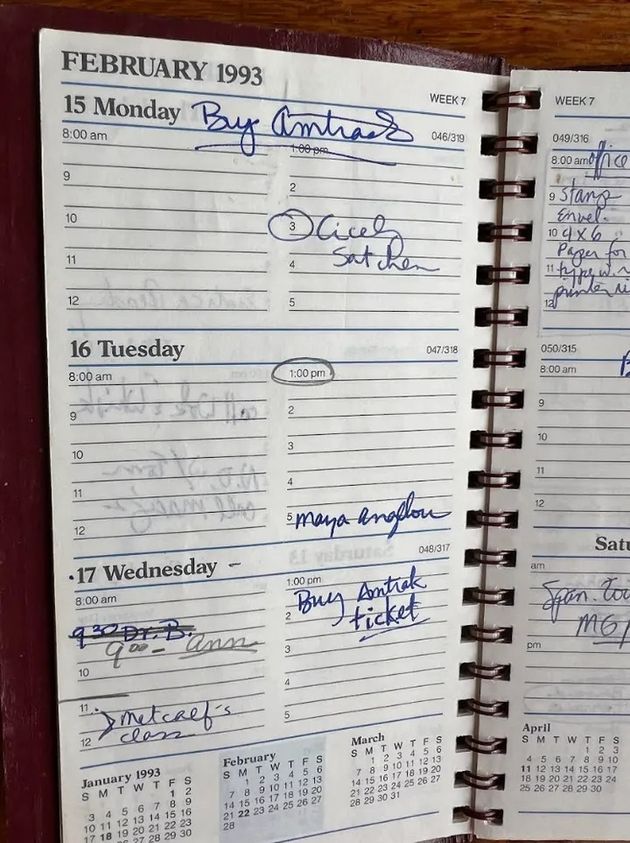 FEBRUARY 1993
WEEK 7
15 Monday
Buy Amtrack
046/319
8:00 am
9
10
11
12
1:00 pm
2
3 Cicely
Satchen
4
5
16 Tuesday
047/318
8:00 am
9
10
11
12
1:00 pm
2
3
4
5 Maya Angelou
17 Wednesday –
048/317
8:00 am
9 30 Dr. B.
9 00 – Ann
10
11
Metcalf's
12 class
1:00 pm
Buy Amtrak
2 ticket
3
4
5
January 1993
S M T W T F S
1 2
3 4 5 6 7 8 9
10 11 12 13 14 15 16
17 18 19 20 21 22 23
February
S M T W T F S
1 2 3 4 5 6
7 8 9 10 11 12 13
14 15 16 17 18 19 20
21 22 23 24 25 26 27
28
March
S M T W T F S
1 2 3 4 5 6
7 8 9 10 11 12 13
14 15 16 17 18 19 20
21 22 23 24 25 26 27
28 29 30 31
WEEK 7
049/316
8:00 am office
9 Stamp
Envel.
10 4x6
Paper for
11
12
050/315
8:00 am
9
10
11
12
am
pm
April
S M T W T F S
1 2 3
4 5 6 7 8 9 10
11 12 13 14 15 16 17
18 19 20 21 22 23 24
25 26 27 28 29 30